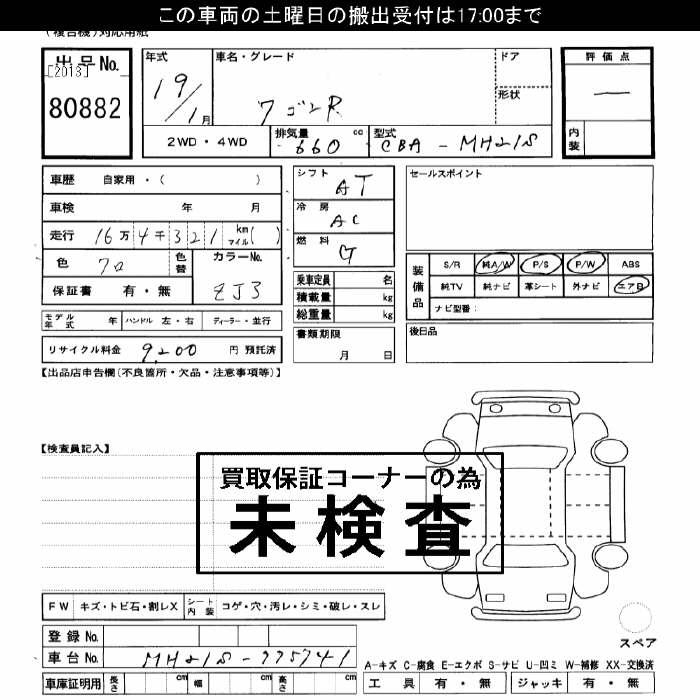 この車両の土曜日の搬出受付は17:00まで
(複合機)対応用紙
出品No.
[2013]
80882
年式
19/1月
車名・グレード
ワゴンR
ドア
形状
評価点
—
内装
2WD・4WD
排気量 660 cc
型式 CBA - MH21S
車歴 自家用・( )
車検 年 月
走行 16万4千321 km マイル( )
色 クロ 色替
カラーNo. ZJ3
保証書 有・無
シフト AT
冷房 AC
燃料 G
乗車定員 名
積載量 kg
総重量 kg
書類期限
月 日
セールスポイント
装備品
S/R 純A/W P/S P/W ABS
純TV 純ナビ 革シート 外ナビ エアB
ナビ型番:
後日品
モデル年式 年 ハンドル 左・右 ディーラー・並行
リサイクル料金 9200 円 預託済
【出品店申告欄(不良箇所・欠品・注意事項等)】
【検査員記入】
買取保証コーナーの為
未検査
FW キズ・トビ石・割レX シート内装 コゲ・穴・汚レ・シミ・破レ・スレ
登録No.
車台No. MH21S-775741
車庫証明用 長さ cm 幅 cm 高さ cm
スペア
A-キズ C-腐食 E-エクボ S-サビ U-凹ミ W-補修 XX-交換済
工具 有・無 ジャッキ 有・無